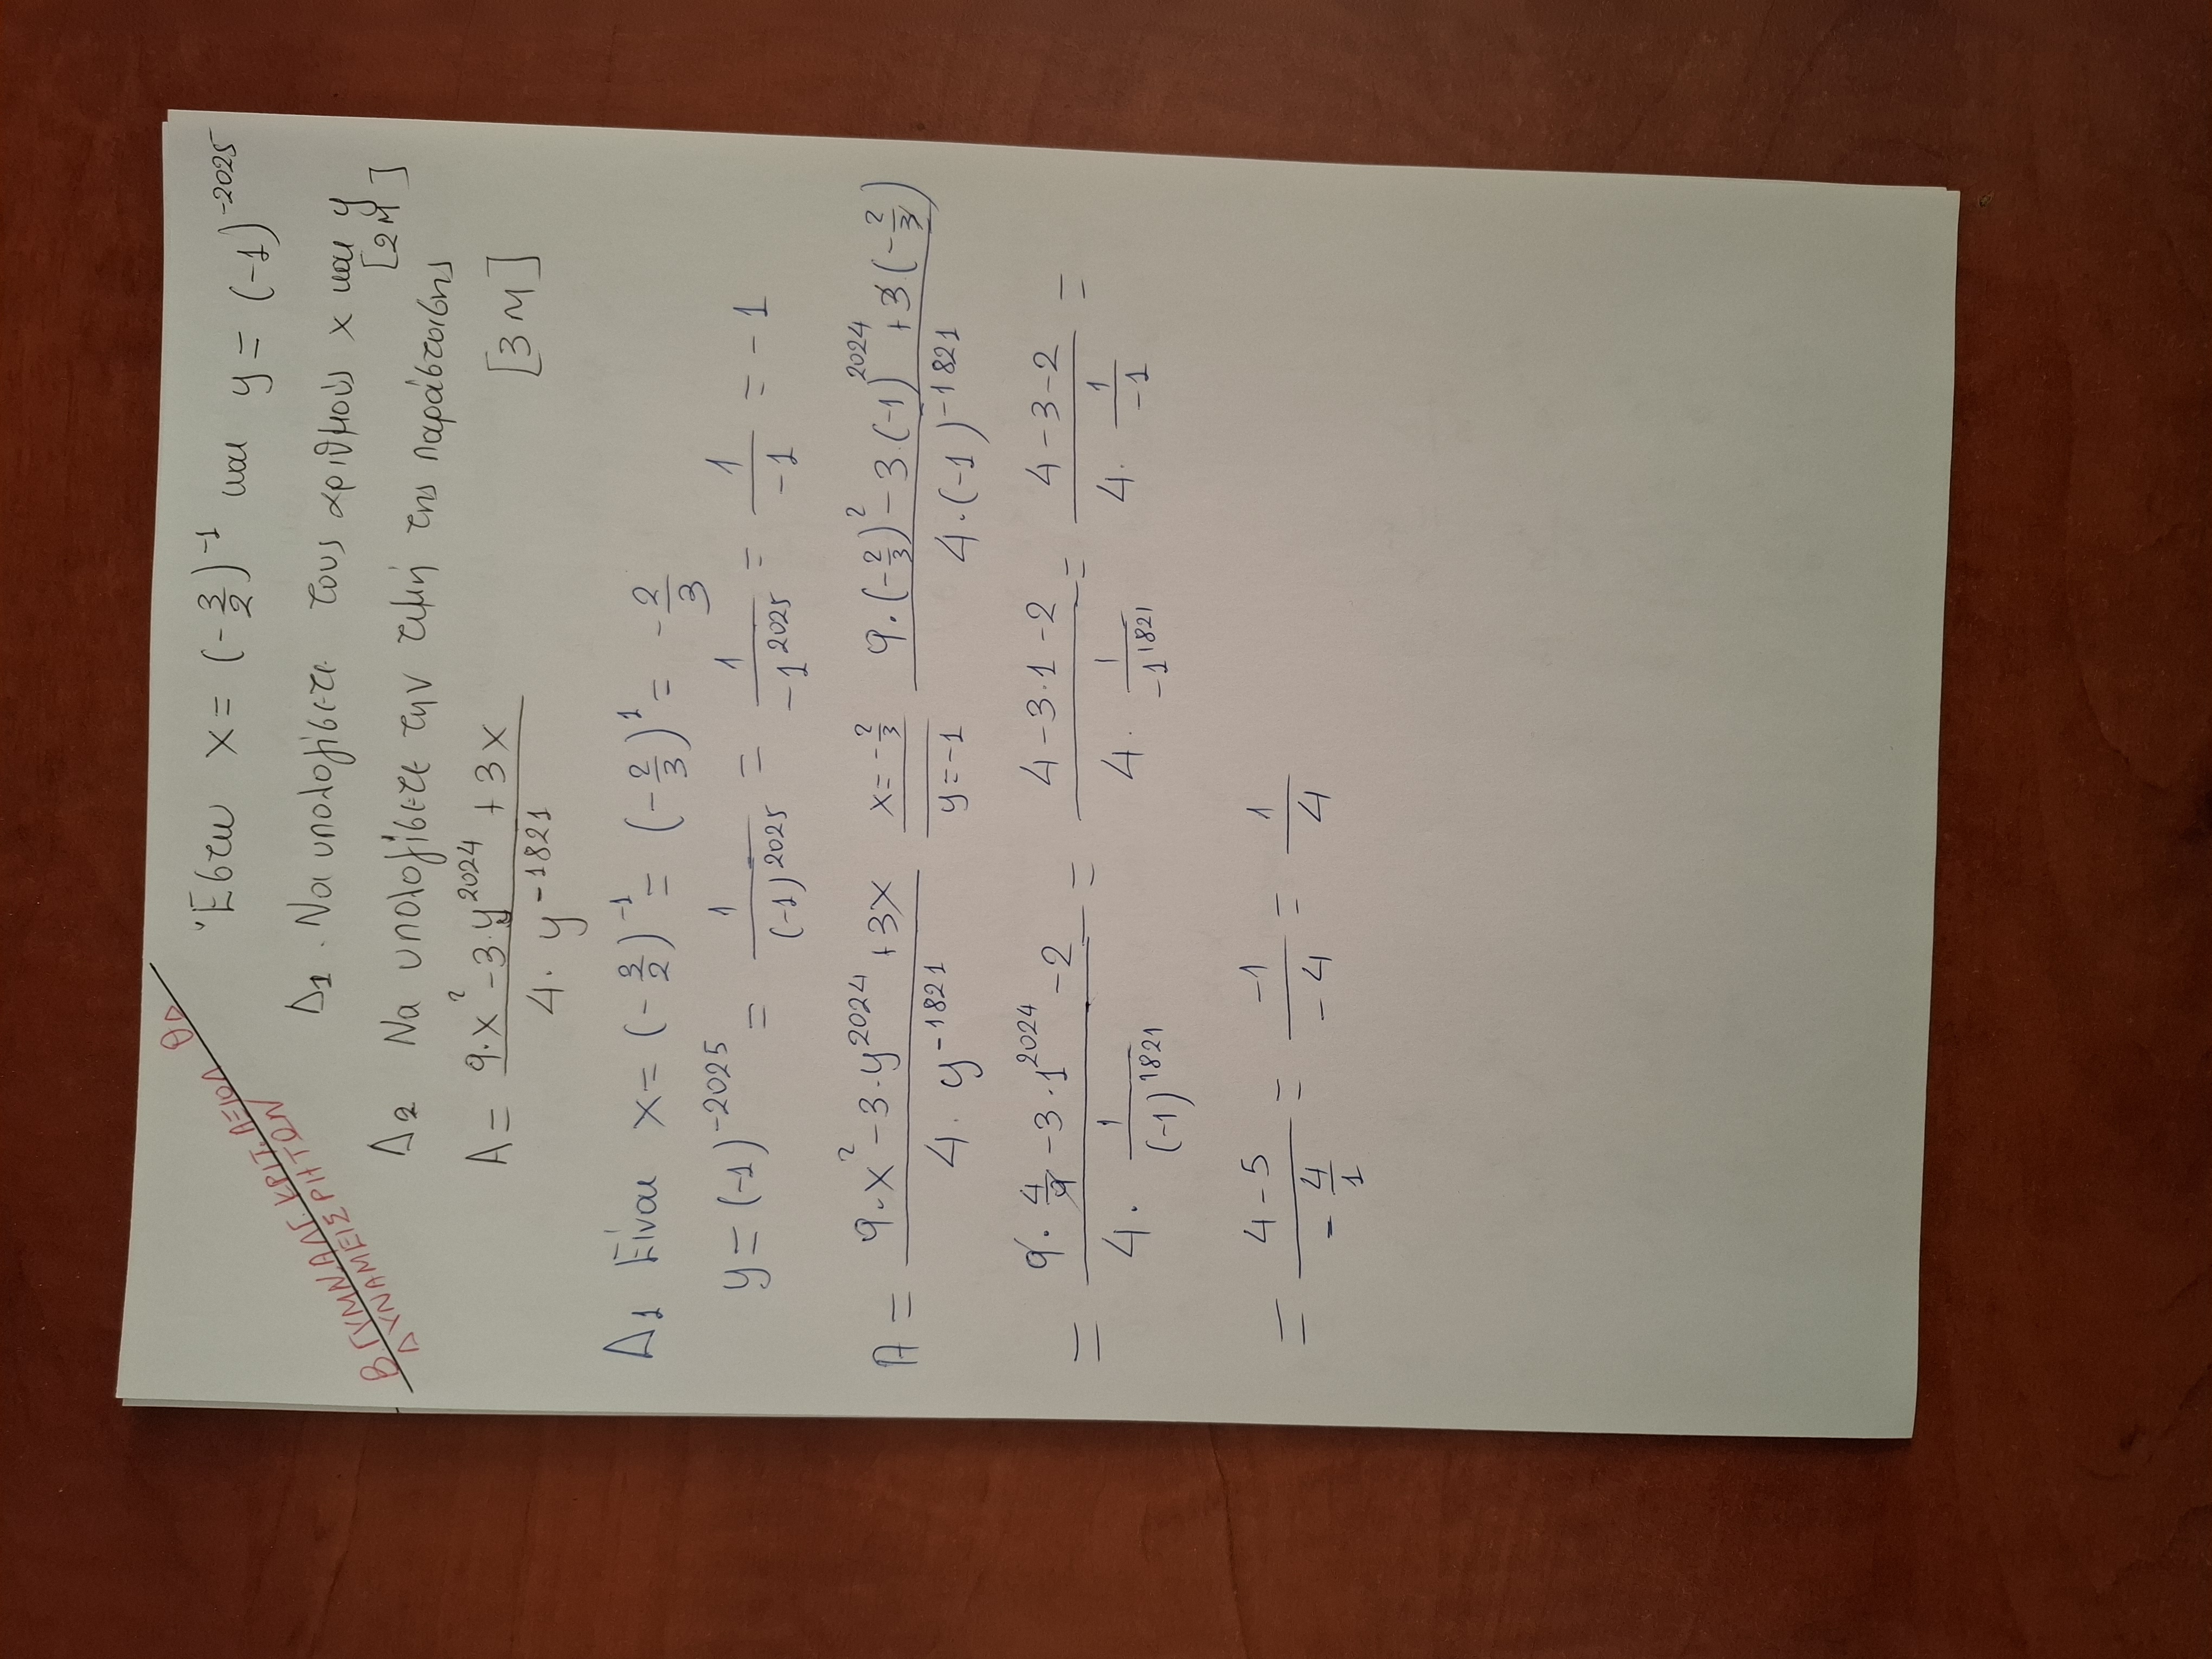 Β ΓΥΜΝΑΣ. ΚΡΙΤ. ΑΞΙΟΛ ΘΔ
ΔΥΝΑΜΕΙΣ ΡΗΤΩΝ
Έστω x = (-3/2)^-1 και y = (-1)^-2025
Δ1. Να υπολογίσετε τους αριθμούς x και y
[2Μ]
Δ2 Να υπολογίσετε την τιμή της παράστασης
A = (9·x^2 - 3·y^2024 + 3x)/(4·y^-1821) [3Μ]
Δ1 Είναι x = (-3/2)^-1 = (-2/3)^1 = -2/3
y = (-1)^-2025 = 1/(-1)^2025 = 1/-1^2025 = 1/-1 = -1
A = (9·x^2 - 3·y^2024 + 3x)/(4·y^-1821) x=-2/3 y=-1 (9·(-2/3)^2 - 3·(-1)^2024 + 3(-2/3))/(4·(-1)^-1821)
= (9·4/9 - 3·1^2024 - 2)/(4·1/(-1)^1821) = (4-3·1-2)/(4·1/-1^1821) = (4-3-2)/(4·1/-1) =
= (4-5)/(-4/1) = -1/-4 = 1/4